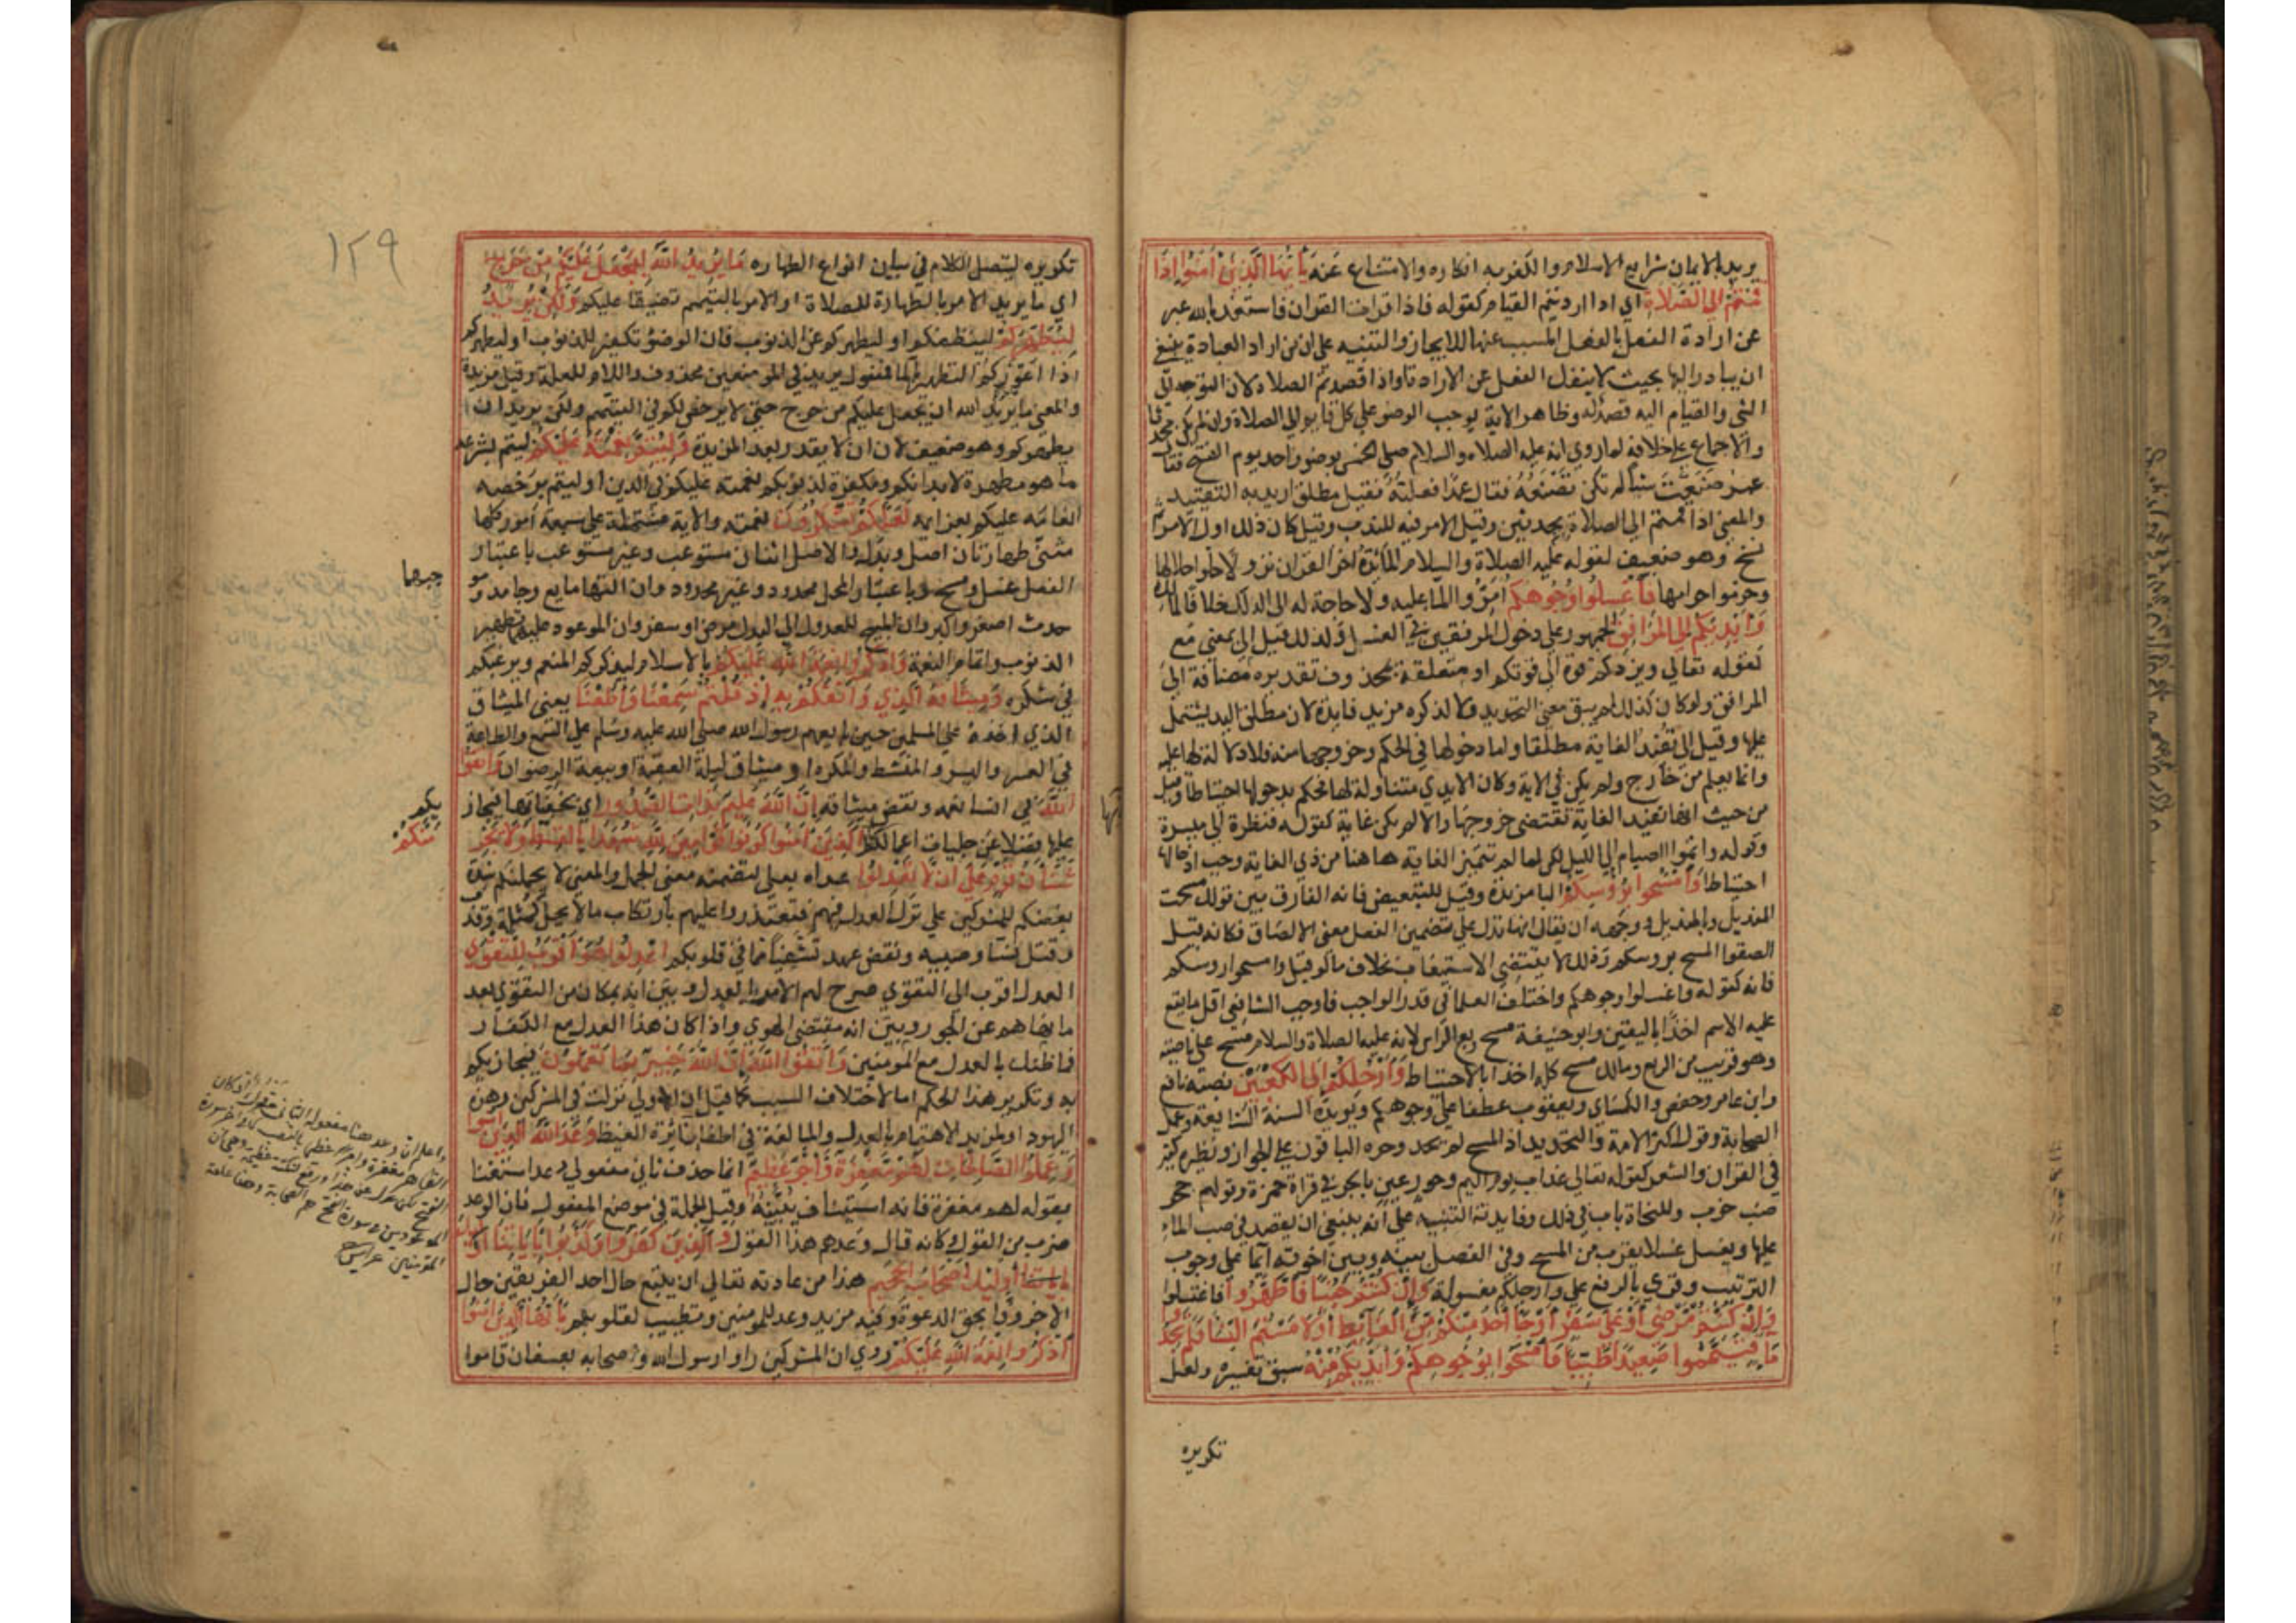 يريد بالايمان شرايع الاسلام والكفر به انكاره والامتناع عنه يَا أَيُّهَا الَّذِينَ آمَنُوا إِذَا
قُمْتُمْ إِلَى الصَّلَاةِ اي اذا اردتم القيام كقوله فاذا قرات القران فاستعذ بالله عبر
عن ارادة الفعل بالفعل المسبب عنها للايجاز والتنبيه على ان من اراد العبادة ينبغي
ان يبادر اليها بحيث لا ينفك الفعل عن الارادة او اذا قصدتم الصلاة لان التوجه الى
الشي والقيام اليه قصد له وظاهر الاية يوجب الوضوء على كل قايم الى الصلاة وان لم يكن محدثا
والاجماع على خلافه لما روي انه عليه الصلاة والسلام صلى الخمس بوضوء واحد يوم الفتح فقال
عمر صنعت شيأ لم تكن تصنعه فقال عمدا فعلته فقيل مطلق اريد به التقييد
والمعنى اذا قمتم الى الصلاة محدثين وقيل الامر فيه للندب وقيل كان ذلك اول الامر ثم
نسخ وهو ضعيف لقوله عليه الصلاة والسلام المائدة اخر القران نزولا فاحلوا حلالها
وحرموا حرامها فَاغْسِلُوا وُجُوهَكُمْ امرّوا الما عليه ولا حاجة له الى الدلك خلافا لمالك
وَأَيْدِيَكُمْ إِلَى الْمَرَافِقِ الجمهور على دخول المرفقين في الغسل ولذلك قيل الى بمعنى مع
لقوله تعالى ويزدكم قوة الى قوتكم او متعلقة بمحذوف تقديره مضافة الى
المرافق ولو كان كذلك لم يبق معنى التحديد ولا لذكره مزيد فايدة لان مطلق اليد يشتمل
عليها وقيل الى تفيد الغاية مطلقا واما دخولها في الحكم وخروجها منه فلا دلالة لها عليه
وانما يعلم من خارج ولم يكن في الاية وكان الايدي متناولة لها فحكم بدخولها احتياطا وقيل
من حيث انها تفيد الغاية تقتضي خروجها والا لم يكن غاية كقوله فنظرة الى ميسرة
وقوله واتموا الصيام الى الليل لكن لما لم تتميز الغاية هاهنا من ذي الغاية وجب ادخالها
احتياطا وَامْسَحُوا بِرُؤُسِكُمْ البا مزيدة وقيل للتبعيض فانه الفارق بين قولك مسحت
المنديل وبالمنديل ووجهه ان يقال انها تدل على تضمين الفعل معنى الالصاق فكانه قيل
الصقوا المسح بروسكم وذلك لا يقتضي الاستيعاب بخلاف ما لو قيل وامسحوا روسكم
فانه كقوله واغسلوا وجوهكم واختلف العلما في قدر الواجب فاوجب الشافعي اقل ما يقع
عليه الاسم اخذا باليقين وابو حنيفة مسح ربع الراس لانه عليه الصلاة والسلام مسح على ناصيته
وهو قريب من الربع ومالك مسح كله اخذا بالاحتياط وَأَرْجُلَكُمْ إِلَى الْكَعْبَيْنِ نصبه نافع
وابن عامر وحفص والكساي ويعقوب عطفا على وجوهكم ويويده السنة الشايعة وعمل
الصحابة وقول اكثر الامة والتحديد اذ المسح لم يحد وجره الباقون على الجوار ونظيره كثير
في القران والشعر كقوله تعالى عذاب يوم اليم وحور عين بالجر في قراة حمزة وقولهم جحر
ضب خرب وللنحاة باب في ذلك وفايدته التنبيه على انه ينبغي ان يقصد في صب الماء
عليها ويغسل غسلا يقرب من المسح وفي الفصل بينه وبين اخوته ايما على وجوب
الترتيب وقري بالرفع على وارجلكم مغسولة وَإِنْ كُنْتُمْ جُنُبًا فَاطَّهَّرُوا فاغتسلوا
وَإِنْ كُنْتُمْ مَرْضَى أَوْ عَلَى سَفَرٍ أَوْ جَاءَ أَحَدٌ مِنْكُمْ مِنَ الْغَائِطِ أَوْ لَامَسْتُمُ النِّسَا فَلَمْ تَجِدُوا
مَا فَتَيَمَّمُوا صَعِيدًا طَيِّبًا فَامْسَحُوا بِوُجُوهِكُمْ وَأَيْدِيكُمْ مِنْهُ سبق تفسيره ولعل
تكريره
١٢٩
تكريره ليتصل الكلام في بيان انواع الطهاره مَا يُرِيدُ اللَّهُ لِيَجْعَلَ عَلَيْكُمْ مِنْ حَرَجٍ
اي ما يريد الامر بالطهارة للصلاة او الامر بالتيمم تضييقا عليكم وَلَكِنْ يُرِيدُ
لِيُطَهِّرَكُمْ لينظفكم او ليطهركم عن الذنوب فان الوضوء تكفير للذنوب او ليطهركم
اذا اعوزكم التطهر بالما فمفعول يريد في الموضعين محذوف واللام للعلة وقيل مزيدة
والمعنى ما يريد الله ان يجعل عليكم من حرج حتى لا يرخص لكم في التيمم ولكن يريد ان
يطهركم وهو ضعيف لان ان لا يقدر بعد المزيدة وَلِيُتِمَّ نِعْمَتَهُ عَلَيْكُمْ ليتم بشرعه
ما هو مطهرة لابدانكم ومكفرة لذنوبكم نعمته عليكم في الدين او ليتم برخصه
انعامه عليكم بعزائمه لَعَلَّكُمْ تَشْكُرُونَ نعمته والاية مشتملة على سبعة امور كلها
مثنى طهارتان اصل وبدل والاصل اثنان مستوعب وغير مستوعب باعتبار
الفعل غسل ومسح وباعتبار المحل محدود وغير محدود وان التهما مايع وجامد و
جبهما
حدث اصغر واكبر وان المبيح للعدول الى البدل مرض او سفر وان الموعود عليهما تطهير
الذنوب واتمام النعمة وَاذْكُرُوا نِعْمَةَ اللَّهِ عَلَيْكُمْ بالاسلام ليذكركم المنعم ويرغبكم
في شكره وَمِيثَاقَهُ الَّذِي وَاثَقَكُمْ بِهِ إِذْ قُلْتُمْ سَمِعْنَا وَأَطَعْنَا يعني الميثاق
الذي اخذه على المسلمين حين بايعهم رسول الله صلى الله عليه وسلم على السمع والطاعة
في العسر واليسر والمنشط والمكره او ميثاق ليلة العقبة او بيعة الرضوان وَاتَّقُوا
اللَّهَ في انسا نعمه ونقض ميثاقه إِنَّ اللَّهَ عَلِيمٌ بِذَاتِ الصُّدُورِ اي بخفياتها فيجاز
يكم
عليها فضلا عن جليات اعمالكم الَّذِينَ آمَنُوا كُونُوا قَوَّامِينَ لِلَّهِ شُهَدَا بِالْقِسْطِ وَلَا يَجْرِ
مَنَّكُمْ
شَنَآنُ قَوْمٍ عَلَى أَنْ لَا تَعْدِلُوا عداه بعلى لتضمنه معنى الحمل والمعنى لا يحملنكم شدة
بغضكم للمشركين على ترك العدل فيهم فتعتدوا عليهم بارتكاب ما لا يحل كمثلة وقذف
وقتل نسا وصبية ونقض عهد تشفيا مما في قلوبكم اعْدِلُوا هُوَ أَقْرَبُ لِلتَّقْوَى
العدل اقرب الى التقوى صرح لهم الامر بالعدل وبين انه بمكان من التقوى بعد
ما نهاهم عن الجور وبين انه مقتضى الهوى واذا كان هذا العدل مع الكفار
فما ظنك بالعدل مع المومنين وَاتَّقُوا اللَّهَ إِنَّ اللَّهَ خَبِيرٌ بِمَا تَعْمَلُونَ فيجازيكم
به وتكرير هذا الحكم اما لاختلاف السبب كما قيل ان الاولى نزلت في المشركين وهذه
اليهود او لمزيد الاهتمام بالعدل والمبالغة في اطفا نائرة الغيظ وَعَدَ اللَّهُ الَّذِينَ آمَنُوا
وَعَمِلُوا الصَّالِحَاتِ لَهُمْ مَغْفِرَةٌ وَأَجْرٌ عَظِيمٌ انما حذف ثاني مفعولي وعد استغنا
بقوله لهم مغفرة فانه استيناف يبينه وقيل الجملة في موضع المفعول فان الوعد
ضرب من القول وكانه قال وعدهم هذا القول وَالَّذِينَ كَفَرُوا وَكَذَّبُوا بِآيَاتِنَا
أُولَئِكَ أَصْحَابُ الْجَحِيمِ هذا من عادته تعالى ان يتبع حال احد الفريقين حال
الاخر وفا بحق الدعوة وفيه مزيد وعد للمومنين وتطييب لقلوبهم يَا أَيُّهَا الَّذِينَ آمَنُوا
اذْكُرُوا نِعْمَةَ اللَّهِ عَلَيْكُمْ روي ان المشركين راوا رسول الله واصحابه بعسفان قاموا